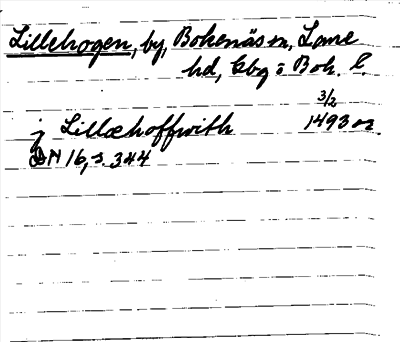 Lillehogen, by, Bokenäs sn, Lane
hd, Gbg o Boh. l.
3/2
j Lillæhoffwith 1493 or.
DN 16, s. 344